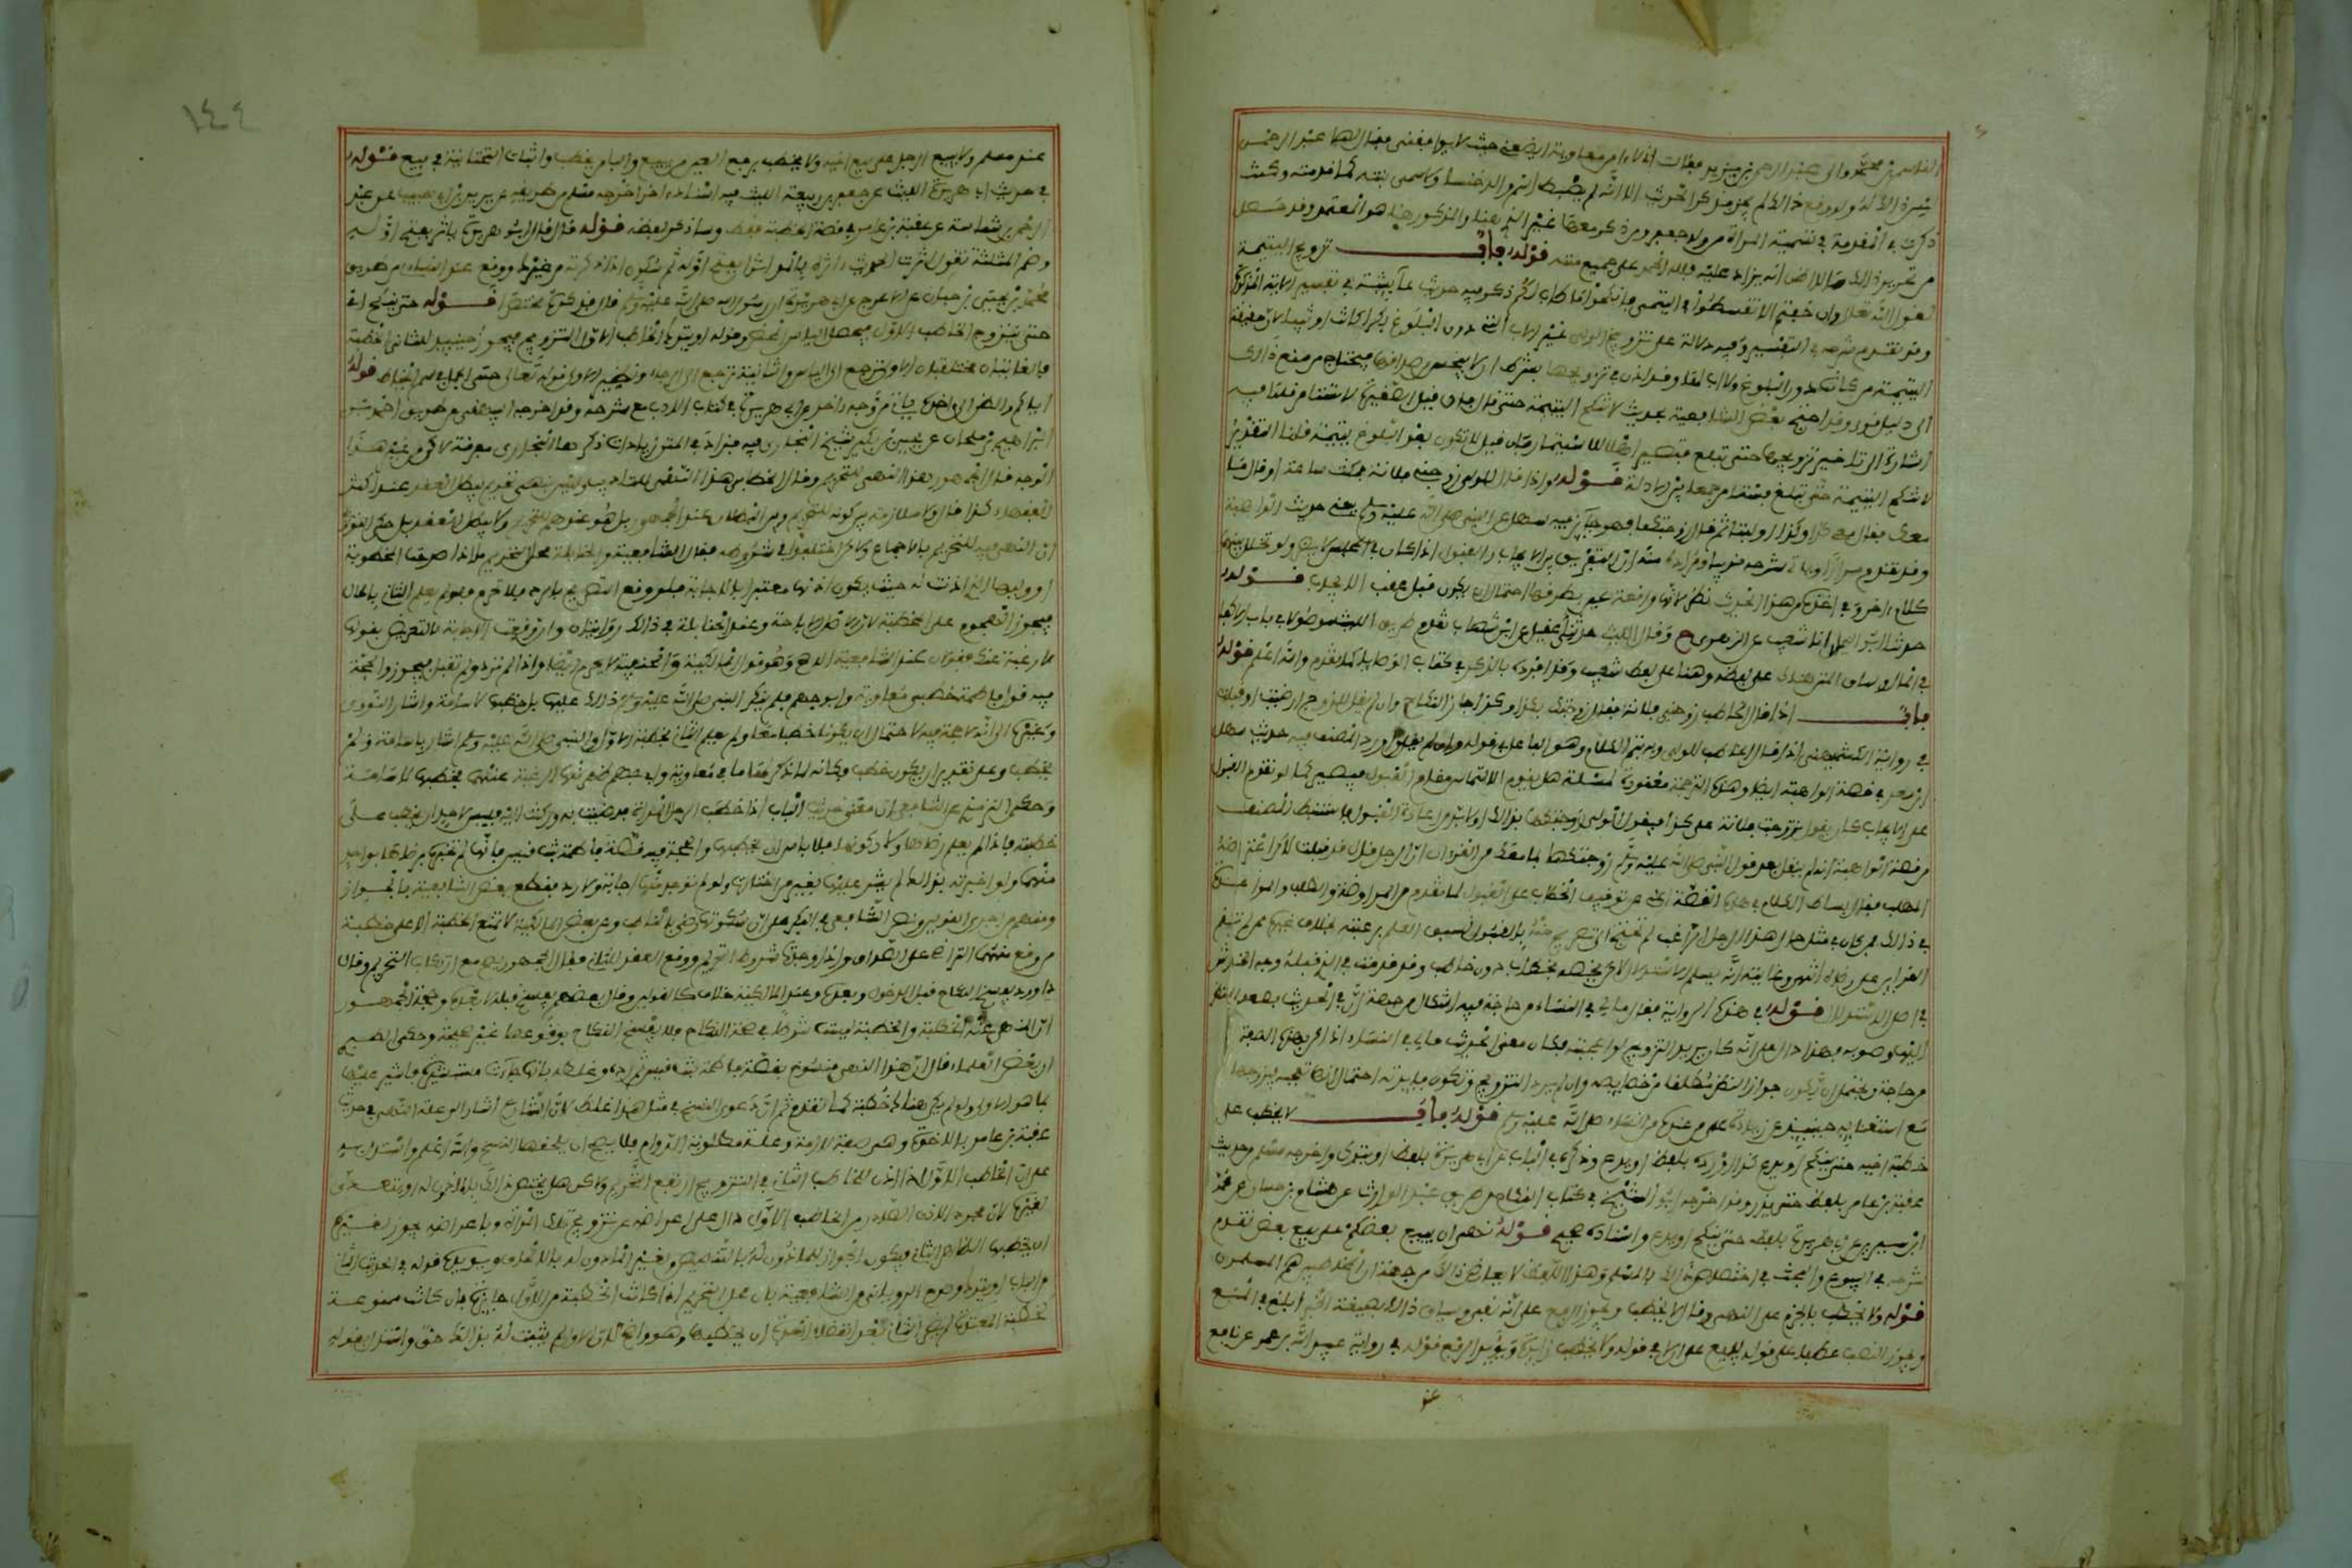 القاسم بن محمد والى عبد الرحمن بن يزيد فقالت
ليس ذلك له ولو وقع ذلك لم يكن من ذكر الحديث
ذكرت في المقدمة في تسمية المرأة من ولد جعفر ومن ذكر معها غير الذي هنا والمذكور هنا هو المعتمد وقد حصل
من تحرير ذلك ما لا اظن انه يزاد عليه فلله الحمد على جميع مننه قوله باب تزويج اليتيمة
لقول الله تعلى وان خفتم الا تقسطوا في اليتمى فانكحوا ما طاب لكم ذكر فيه حديث عائشة في تفسير الاية المذكورة
وقد تقدم شرحه في التفسير وفيه دلالة على تزويج الولي غير الاب التي دون البلوغ بكرا كانت او ثيبا لان حقيقة
اليتيمة من كانت دون البلوغ ولا اب لها وقد اذن في تزويجها بشرط ان لا يبخس من صداقها فيحتاج من منع ذلك
الى دليل قوي وقد احتج بعض الشافعية بحديث لا تنكح اليتيمة حتى تستأمر قلنا فيه
اشارة الى تاخير تزويجها حتى تبلغ فتصير اهلا للاستئمار فان قيل لا تكون بعد البلوغ يتيمة قلنا التقدير
لا تنكح اليتيمة حتى تبلغ فتستامر جمعا بين الادلة قوله واذا قال للولي زوجني فلانة فمكث ساعة او قال ما
معك فقال معي كذا وكذا او لبثا ثم قال زوجتكها فهو جائز فيه سهل عن النبي صلى الله عليه وسلم يعني حديث الواهبة
وقد تقدم مرارا وياتي شرحه قريبا ومراده منه ان التفريق بين الايجاب والقبول اذا كان في المجلس لا يضر ولو تخلل بينهما
كلام اخر وفي اخذه من هذا الحديث نظر لانها واقعة عين يطرقها احتمال ان يكون قبل عقب الايجاب قوله
حدثنا ابو اليمان انا شعيب عن الزهري ح وقال الليث حدثني عقيل عن ابن شهاب تقدم طريق الليث موصولا في باب الاكفاء
في المال وساق المتن هناك على لفظه وهنا على لفظ شعيب وقد افرده بالذكر في كتاب الوصايا كما تقدم والله اعلم قوله
باب اذا قال الخاطب زوجني فلانة فقال زوجتك بكذا وكذا جاز النكاح وان لم يقل للزوج ارضيت او قبلت
في رواية الكشميهني اذا قال الخاطب للولي وبه يتم الكلام وهو الفاعل في قوله وان لم يقل اورد المصنف فيه حديث سهل
ابن سعد في قصة الواهبة ايضا وهذه الترجمة معقودة لمسئلة هل يقوم الالتماس مقام القبول فيصير كما لو تقدم القبول
على الايجاب كان يقول تزوجت فلانة على كذا فيقول الولي زوجتكها بذلك او لا بد من اعادة القبول فاستنبط المصنف
من قصة الواهبة انه لم ينقل بعد قول النبي صلى الله عليه وسلم زوجتكها بما معك من القران ان الرجل قال قد قبلت لكن اعترضه
المهلب فقال بساط الكلام في هذه القصة اغنى عن توقيف الخاطب على القبول لما تقدم من المراوضة والطلب والمعاودة
في ذلك فمن كان في مثل حال هذا الرجل الراغب لم يحتج الى تصريح منه بالقبول لسبق العلم برغبته بخلاف غيره ممن لم تقم
القراين على رضاه انتهى وغايته انه يسلم الاستدلال لكن يخصه بخاطب دون خاطب وقد قدمت في الذي قبله وجه الخدش
في اصل الاستدلال قوله في هذه الرواية فقال مالي في النساء من حاجة فيه اشكال من جهة ان في الحديث فصعد النظر
اليها وصوبه فهذا دال على انه كان يريد التزويج لو اعجبته فكان معنى الحديث مالي في النساء اذا كن بهذه الصفة
من حاجة ويحتمل ان يكون جواز النظر مطلقا من خصايصه وان لم يرد التزويج وتكون فايدته احتمال انها تعجبه فيتزوجها
مع استغنايه حينئذ عن زيادة على من عنده من النساء صلى الله عليه وسلم قوله باب لا يخطب على
خطبة اخيه حتى ينكح او يدع كذا اورده بلفظ او يدع وذكره في الباب عن ابي هريرة بلفظ او يترك واخرجه مسلم من حديث
عقبة بن عامر بلفظ حتى يذر وقد اخرجه ابو الشيخ في كتاب النكاح من طريق عبد الوارث عن هشام بن حسان عن محمد
ابن سيرين عن ابي هريرة بلفظ حتى ينكح او يدع واسناده صحيح قوله نهى ان يبيع بعضكم على بيع بعض تقدم
شرحه في البيوع والبحث في اختصاص ذلك بالمسلم وهذا اللفظ لا يعارض ذلك من جهة ان المخاطبين هم المسلمون
قوله ولا يخطب بالجزم على النهي وقال لا يخطب ويجوز الرفع على انه نفي وسياق ذلك بصيغة الخبر ابلغ في المنع
ويجوز النصب عطفا على قوله يبيع على ان لا في قوله ولا يخطب زايدة ويؤيد الرفع قوله في رواية عبيد الله بن عمر عن نافع
عند
١٤٤
عند مسلم ولا يبيع الرجل على بيع اخيه ولا يخطب برفع العين من يبيع والباء من يخطب واثبات التحتانية في بيع قوله
في حديث ابي هريرة الليث عن جعفر بن ربيعة الليث فيه اسناد اخر اخرجه مسلم من طريقه عن يزيد بن ابي حبيب عن عبد
الرحمن بن شماسة عن عقبة بن عامر في قصة الخطبة فقط وساذكر لفظه قوله قال قال ابو هريرة ياثر بفتح اوله
وضم المثلثة تقول اثرت الحديث اثره بالمد اثرا بفتح اوله ثم سكون اذا ذكرته عن غيرك ووقع عند النساءي من طريق
محمد بن يحيى بن حبان عن الاعرج عن ابي هريرة ان رسول الله صلى الله عليه وسلم قال فذكره مختصرا قوله حتى ينكح اي
حتى يتزوج الخاطب الاول فيحصل الياس المحض وقوله او يترك اي الخاطب الاول التزويج فيجوز حينئذ للثاني الخطبة
فالغايتان مختلفتان الاولى ترجع الى الياس والثانية ترجع الى الرجاء ونظير الاولى قوله تعالى حتى يلج الجمل في سم الخياط قوله
اياكم والظن الى اخره ياتي من وجه اخر عن ابي هريرة في كتاب الادب مع شرحه وقد اخرجه البيهقي من طريق احمد بن
ابراهيم بن ملحان عن يحيى بن بكير شيخ البخاري فيه فزاد في المتن زيادات ذكرها البخاري مفرقة لاكن من غير هذا
الوجه قال الجمهور هذا النهي للتحريم وقال الخطابي هذا النهي للتاديب وليس بنهي تحريم يبطل العقد عند اكثر
الفقهاء كذا قال ولا ملازمة بين كونه للتحريم وبين البطلان عند الجمهور بل هو عندهم للتحريم ولا يبطل العقد بل حكى النووي
ان النهي فيه للتحريم بالاجماع ولاكن اختلفوا في شروطه فقال الشافعية والحنابلة محل التحريم ما اذا صرحت المخطوبة
او وليها الذي اذنت له حيث يكون اذنها معتبرا بالاجابة فلو وقع التصريح بالرد فلا تحريم فلو لم يعلم الثاني بالحال
فيجوز الهجوم على الخطبة لان الاصل الاباحة وعند الحنابلة في ذلك روايتان وان وقعت الاجابة بالتعريض كقولها
لا رغبة عنك فقولان عند الشافعية الاصح وهو قول المالكية والحنفية لا يحرم ايضا واذا لم ترد ولم تقبل فيجوز والحجة
فيه قول فاطمة خطبني معاوية وابو جهم فلم ينكر النبي صلى الله عليه وسلم ذلك عليهما بل خطبها لاسامة واشار النووي
وغيره الى انه لا حجة فيه لاحتمال ان يكونا خطبا معا او لم يعلم الثاني بخطبة الاول والنبي صلى الله عليه وسلم اشار باسامة ولم
يخطب وعلى تقدير ان يكون خطب فكانه لما ذكر لها ما في معاوية وابي جهم ظهر منها الرغبة عنهما فخطبها لاسامة
وحكى الترمذي عن الشافعي ان معنى حديث الباب اذا خطب الرجل المراة فرضيت به وركنت اليه فليس لاحد ان يخطب على
خطبته فاذا لم يعلم رضاها ولا ركونها فلا باس ان يخطبها والحجة فيه قصة فاطمة بنت قيس فانها لم تخبره برضاها بواحد
منهما ولو اخبرته بذلك لم يشر عليها بغير من اختارت ولو لم توجد منها اجابة ولا رد فقطع بعض الشافعية بالجواز
ومنهم من اجرى القولين ونص الشافعي في البكر على ان سكوتها رضى بالخاطب وعن بعض المالكية لا تمنع الخطبة الا على خطبة
من وقع بينهما التراضي على الصداق واذا وجدت شروط التحريم ووقع العقد للثاني فقال الجمهور يصح مع ارتكاب التحريم وقال
داوود يفسخ النكاح قبل الدخول وبعده وعند المالكية خلاف كالقولين وقال بعضهم يفسخ قبله لا بعده وحجة الجمهور
ان المنهي عنه الخطبة والخطبة ليست شرطا في صحة النكاح فلا يفسخ النكاح بوقوعها غير صحيحة وحكى الطبري
ان بعض العلماء قال ان هذا النهي منسوخ بقصة فاطمة بنت قيس ثم رده وغلطه بانها جاءت مستشيرة فاشير عليها
بما هو الاولى ولم يكن هناك خطبة كما تقدم ثم ان دعوى النسخ في مثل هذا غلط لان الشارع اشار الى علة النهي في حديث
عقبة بن عامر بالاخوة وهي صفة لازمة وعلة مطلوبة للدوام فلا يصح ان يلحقها النسخ والله اعلم واستدل به
على ان الخاطب الاول اذا اذن للخاطب الثاني في التزويج ارتفع التحريم ولاكن هل يختص ذلك بالماذون له او يتعدى
لغيره لان مجرد الاذن الصادر من الخاطب الاول دال على اعراضه عن تزويج تلك المراة وباعراضه يجوز لغيره
ان يخطبها الظاهر الثاني فيكون الجواز للماذون له بالتنصيص ولغير الماذون له بالالحاق ويويده قوله في الحديث الثاني
من الباب او يترك وصرح الروياني من الشافعية بان محل التحريم اذا كانت الخطبة من الاول جايزة فان كانت ممنوعة
كخطبة المعتدة لم يضر الثاني بعد انقضاء العدة ان يخطبها وهو واضح لان الاول لم يثبت له بذلك حق واستدل بقوله